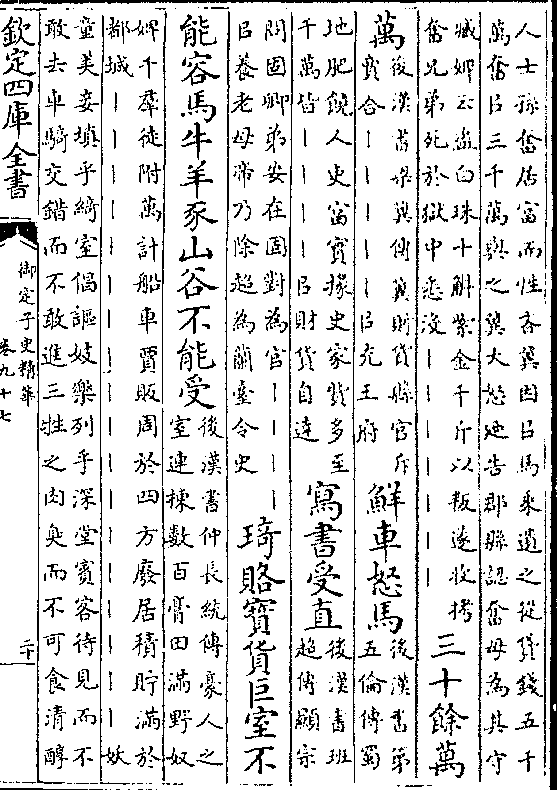 人士孫奮居富而性吝冀因以馬乗遺之從貸錢五千
萬奮以三千萬與之冀大怒廼告郡縣認奮母為其守
臧婢云盜白珠十斛紫金千斤以叛遂收拷
奮兄弟死於獄中悉沒｜｜｜｜｜｜
三十餘萬
萬
後漢書梁冀傳冀財貨縣官斥
賣合｜｜｜｜｜以充王府
鮮車怒馬
後漢書第
五倫傳蜀
地肥饒人吏富實掾史家貲多至
千萬皆｜｜｜｜以財貨自達
寫書受直
後漢書班
超傳顯宗
問固卿弟安在固對為官｜｜｜｜
以養老母帝乃除超為蘭臺令史
琦賂寶貨巨室不
能容馬牛羊豕山谷不能受
後漢書仲長統傳豪人之
室連棟數百膏田滿野奴
婢千羣徒附萬計船車賈販周於四方廢居積貯滿於
都城｜｜｜｜｜｜｜｜｜｜｜｜｜｜｜｜｜｜妖
童美妾填乎綺室倡謳妓樂列乎深堂賓客待見而不
敢去車騎交錯而不敢進三牲之肉臭而不可食清醇
欽定四庫全書
御定子史精華
卷九十七
二十